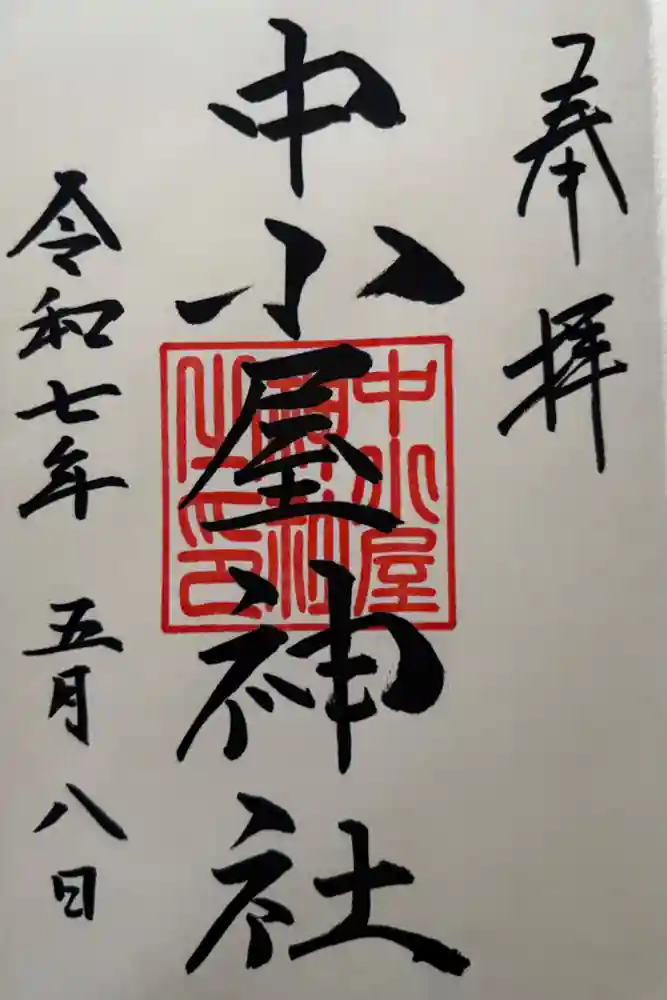 奉拝
中小屋神社
中小屋
神社
之印
令和七年 五月 八日